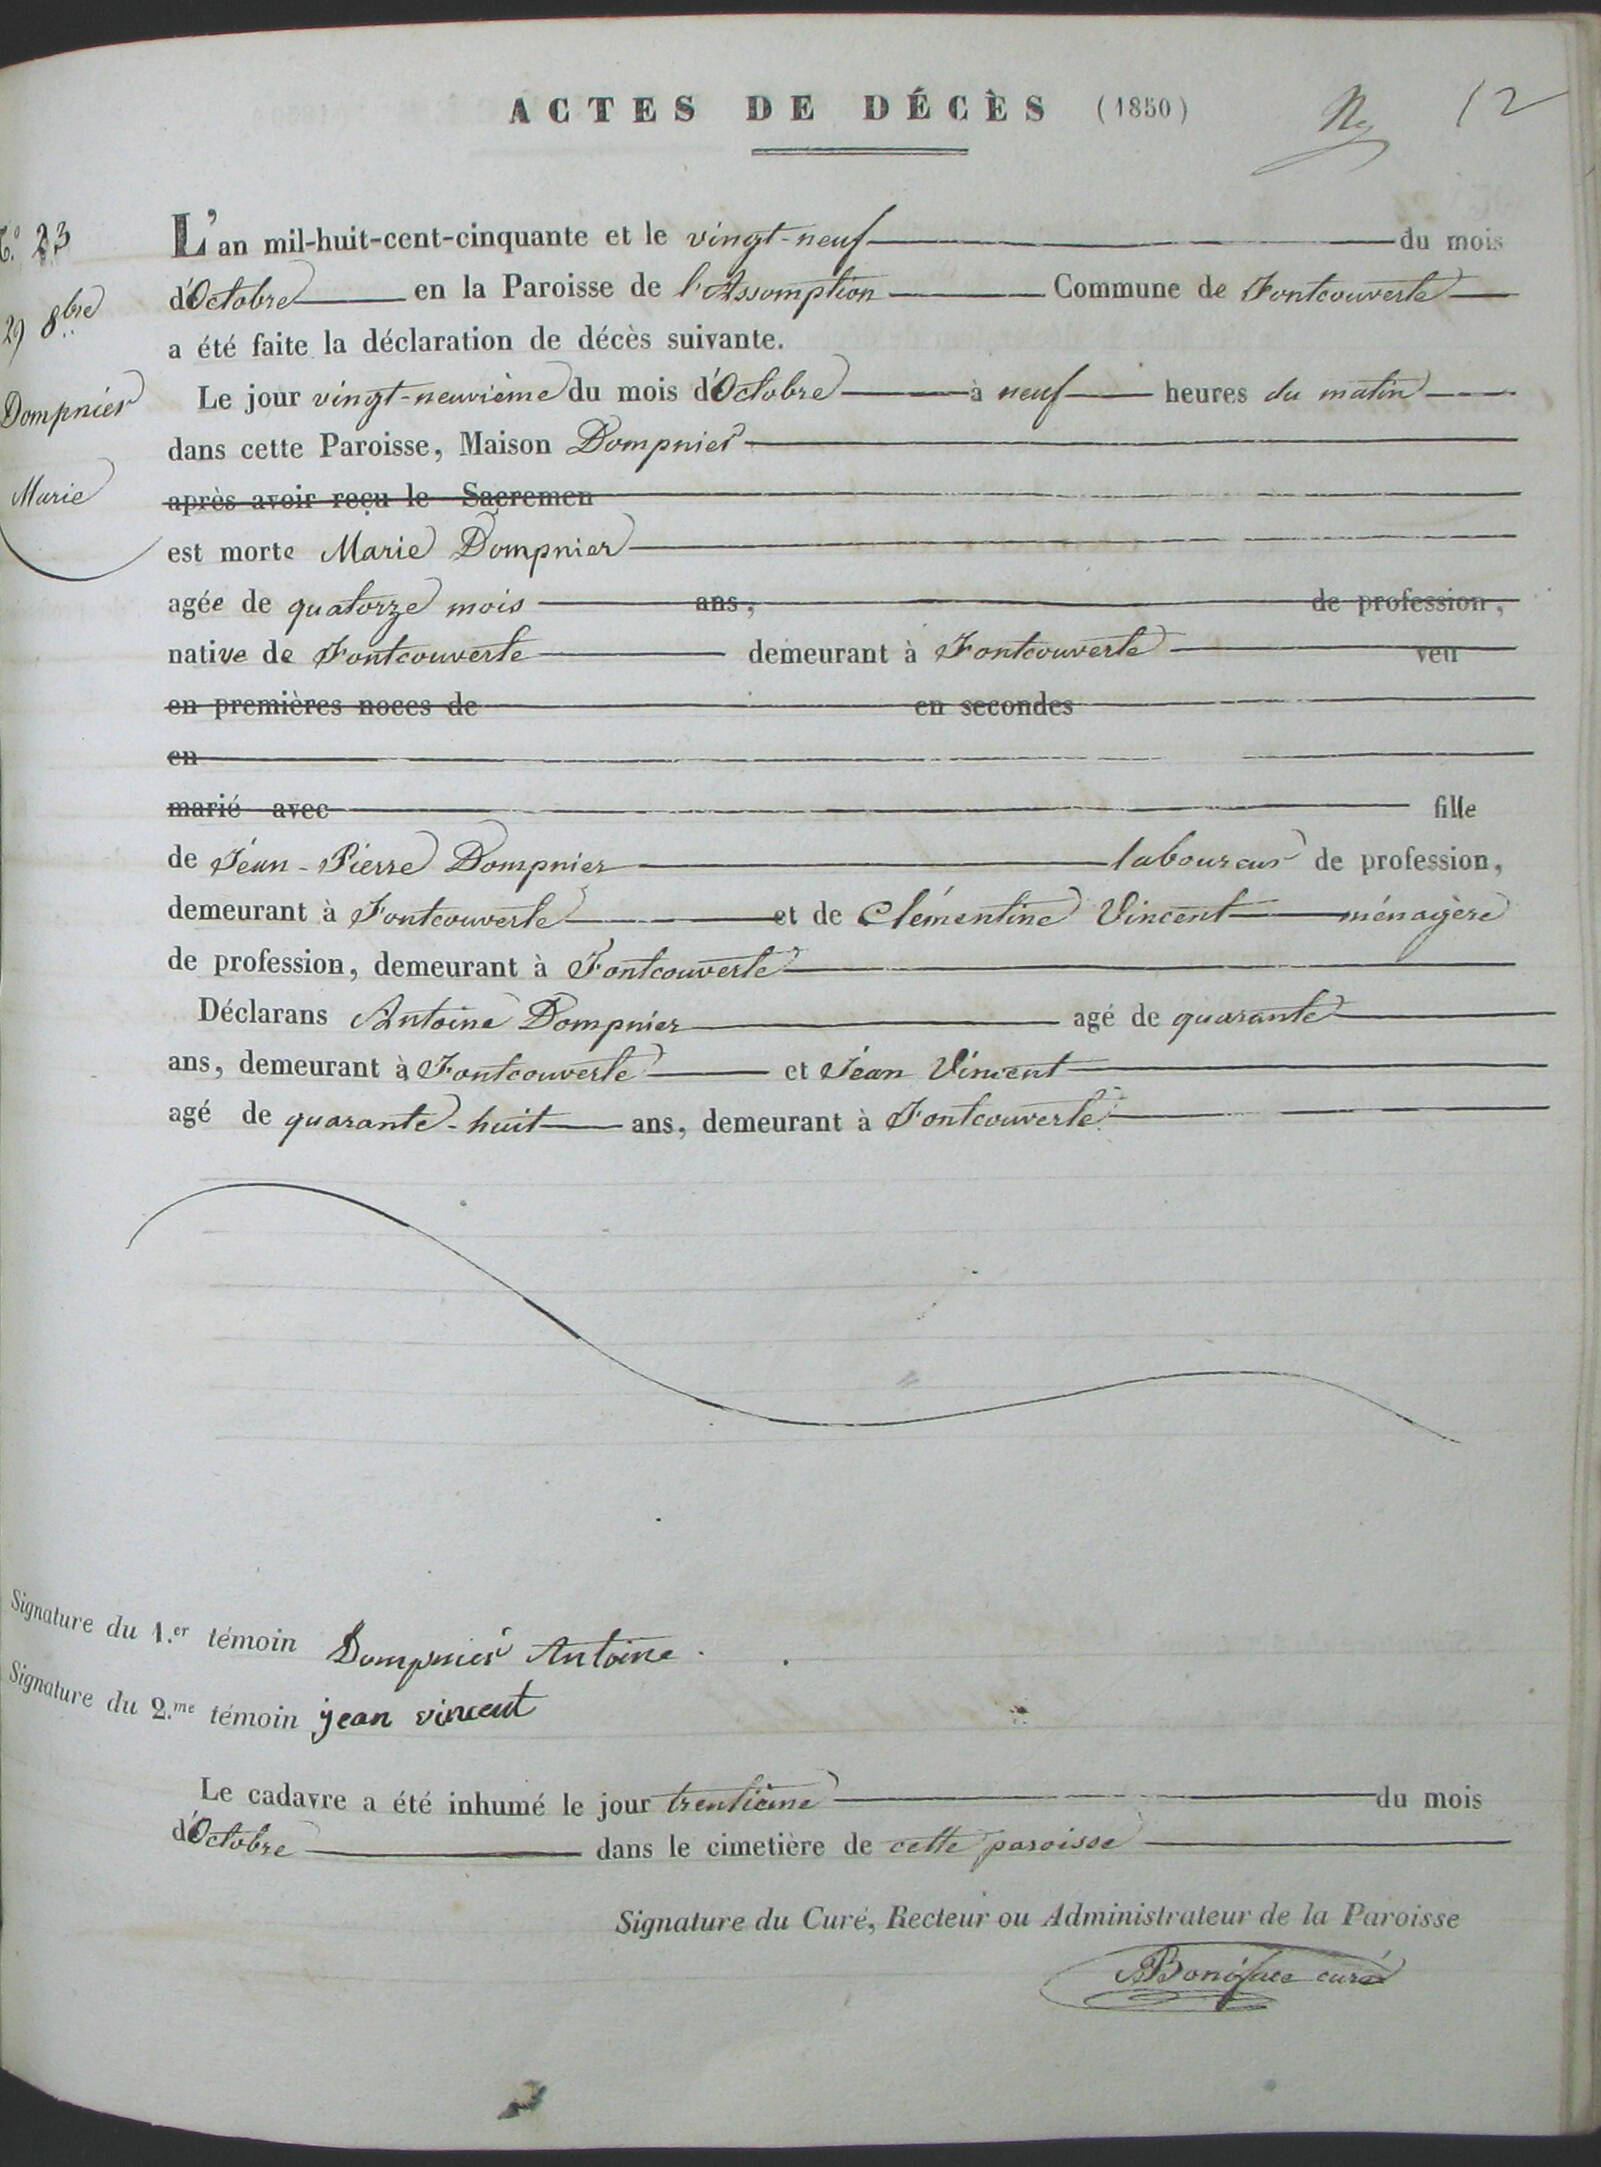 ACTES DE DÉCÈS (1850)
12
N.º 23
29 8.bre
Dompnier
Marie
L'an mil-huit-cent-cinquante et le vingt-neuf du mois
d'Octobre en la Paroisse de l'Assomption Commune de Fontcouverte
a été faite la déclaration de décès suivante.
Le jour vingt-neuvième du mois d'Octobre à neuf heures du matin
dans cette Paroisse, Maison Dompnier
après avoir reçu le Sacremen
est morte Marie Dompnier
agée de quatorze mois ans, de profession,
native de Fontcouverte demeurant à Fontcouverte veu
en premières noces de en secondes
en
marié avec fille
de Jéan-Pierre Dompnier laboureur de profession,
demeurant à Fontcouverte et de Clémentine Vincent ménagère
de profession, demeurant à Fontcouverte
Déclarans Antoine Dompnier agé de quarante
ans, demeurant à Fontcouverte et Jéan Vincent
agé de quarante-huit ans, demeurant à Fontcouverte
Signature du 1.er témoin Dompnier Antoine.
Signature du 2.me témoin jean vincent
Le cadavre a été inhumé le jour trentième du mois
d'Octobre dans le cimetière de cette paroisse
Signature du Curé, Recteur ou Administrateur de la Paroisse
Boniface curé